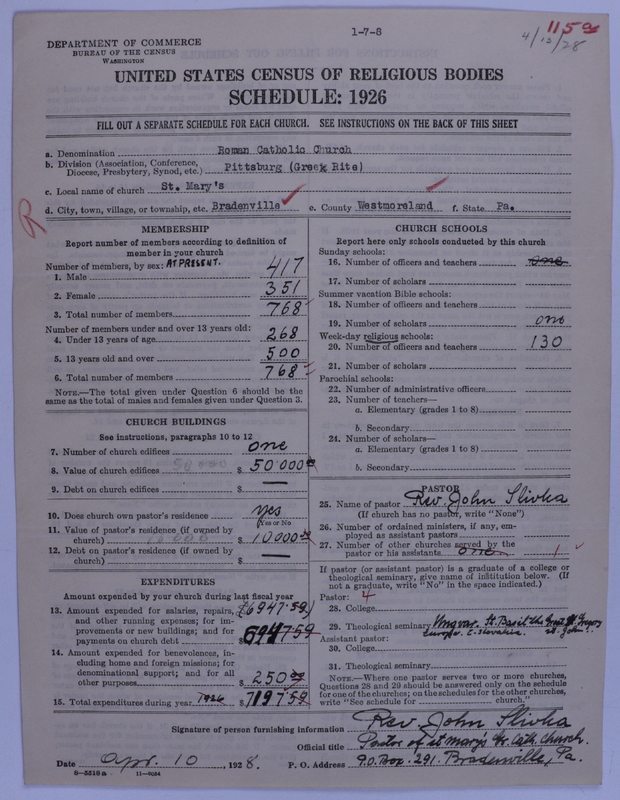 1-7-8
4/12/28
1159
DEPARTMENT OF COMMERCE
BUREAU OF THE CENSUS
WASHINGTON
UNITED STATES CENSUS OF RELIGIOUS BODIES
SCHEDULE: 1926
FILL OUT A SEPARATE SCHEDULE FOR EACH CHURCH. SEE INSTRUCTIONS ON THE BACK OF THIS SHEET
a. Denomination Roman Catholic Church
b. Division (Association, Conference,
Diocese, Presbytery, Synod, etc.) Pittsburg (Greek Rite)
c. Local name of church St. Mary's
d. City, town, village, or township, etc. Bradenville e. County Westmoreland f. State Pa.
R
MEMBERSHIP
Report number of members according to definition of
member in your church
Number of members, by sex: AT PRESENT.
1. Male 417
2. Female 351
3. Total number of members 768
Number of members under and over 13 years old:
4. Under 13 years of age 268
5. 13 years old and over 500
6. Total number of members 768
NOTE.—The total given under Question 6 should be the
same as the total of males and females given under Question 3.
CHURCH BUILDINGS
See instructions, paragraphs 10 to 12
7. Number of church edifices one
8. Value of church edifices $ 50 000
9. Debt on church edifices $ —
10. Does church own pastor's residence yes
(Yes or No)
11. Value of pastor's residence (if owned by
church) $ 10,000
12. Debt on pastor's residence (if owned by
church) $ —
EXPENDITURES
Amount expended by your church during last fiscal year
13. Amount expended for salaries, repairs, (6947.59)
and other running expenses; for im-
provements or new buildings; and for
payments on church debt $ 6947.59
14. Amount expended for benevolences, in-
cluding home and foreign missions; for
denominational support; and for all
other purposes $ 250
15. Total expenditures during year 1926 $ 7197.59
CHURCH SCHOOLS
Report here only schools conducted by this church
Sunday schools:
16. Number of officers and teachers one
17. Number of scholars
Summer vacation Bible schools:
18. Number of officers and teachers
19. Number of scholars one
Week-day religious schools:
20. Number of officers and teachers 130
21. Number of scholars
Parochial schools:
22. Number of administrative officers
23. Number of teachers—
a. Elementary (grades 1 to 8)
b. Secondary
24. Number of scholars—
a. Elementary (grades 1 to 8)
b. Secondary
PASTOR
25. Name of pastor Rev. John Slivka
(If church has no pastor, write "None")
26. Number of ordained ministers, if any, em-
ployed as assistant pastors
27. Number of other churches served by the
pastor or his assistants one 1
If pastor (or assistant pastor) is a graduate of a college or
theological seminary, give name of institution below. (If
not a graduate, write "No" in the space indicated.)
Pastor: 4
28. College
29. Theological seminary Ungvar. St. Basil the Great St. Gregory
Europe. C. Slovakia. St. John.
Assistant pastor:
30. College
31. Theological seminary
NOTE.—Where one pastor serves two or more churches,
Questions 28 and 29 should be answered only on the schedule
for one of the churches; on the schedules for the other churches,
write "See schedule for church."
Signature of person furnishing information Rev. John Slivka
Official title Pastor of St Mary's Gr. Cath. Church.
Date Apr. 10, 1928. P. O. Address P.O. Box. 291. Bradenville, Pa.
8—5518a 11—9034